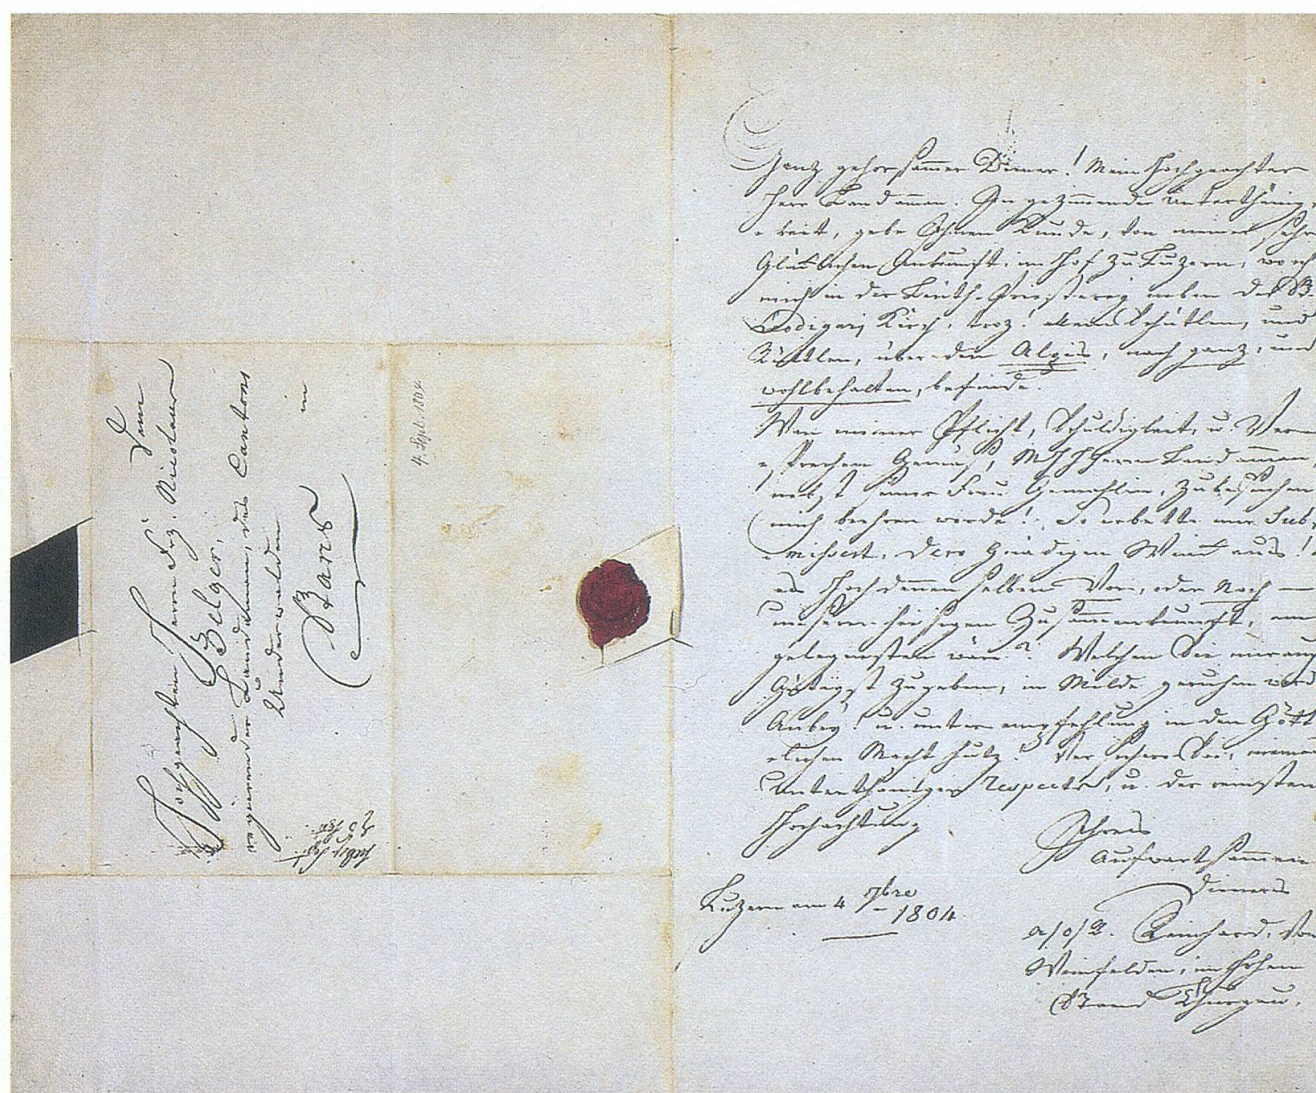 Dem
Hochgeachten Herrn Frz. Niclaus
Zelger,
regierender Landaman, des Cantons
Underwalden
in
Stans
4. Sept. 1804.
Ganz gehorsammer Diener! Mein Hochgeachter
Herr Landamman. In gezimmender Unterthänig-
keit, gebe Ihnen Kunde, von meiner sehr
Glücklichen Ankunft, im Hof zu Luzern, wo ich
mich in der Leuth-Priesterey neben der St.
Leodigarj Kirch, troz! allem Schütlen, und
Rüttlen, über den Alpis, noch ganz, und
wohlbehalten, befinde.
Wan meiner Pflicht, Schuldigkeit, u. Ver-
sprechen Gemäß, Herrn Landamman
nebst seiner Frau Gemahlin, zu besuchen
mich beehren werde! So erbette mir Sub-
misset, dero gnädigen Winck aus!
es Hoch denenselben Vor, oder Nach
unserer hiesigen Zusammenkunft, am
gelegnesten wäre? Welchen Sie mir auf
Gütigst zugeben, in Milde geruhen
Anbey! u. unter Empfehlung in den Gött-
lichen Machtschutz! Versichere Sie, meines
Unterthänigen respects, u. der reinsten
Hochachtung
Ihres
Aufwartsammen
Dieners
Reinhard, von
Weinfelden, im Hohen
Stand Thurgau.
Luzern am 4 7bre
1804.